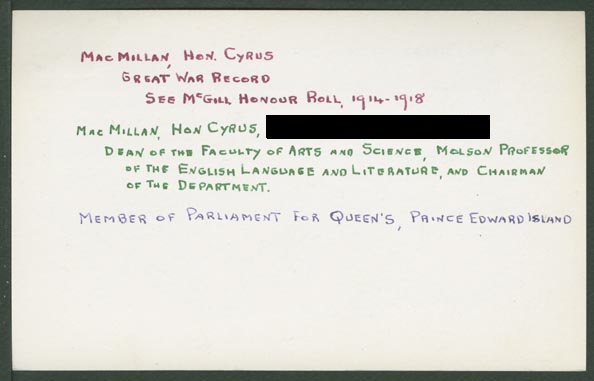 MacMillan, Hon. Cyrus
Great War Record
See McGill Honour Roll, 1914-1918
MacMillan, Hon Cyrus,
Dean of the Faculty of Arts and Science, Molson Professor
of the English Language and Literature, and Chairman
of the Department.
Member of Parliament for Queen's, Prince Edward Island